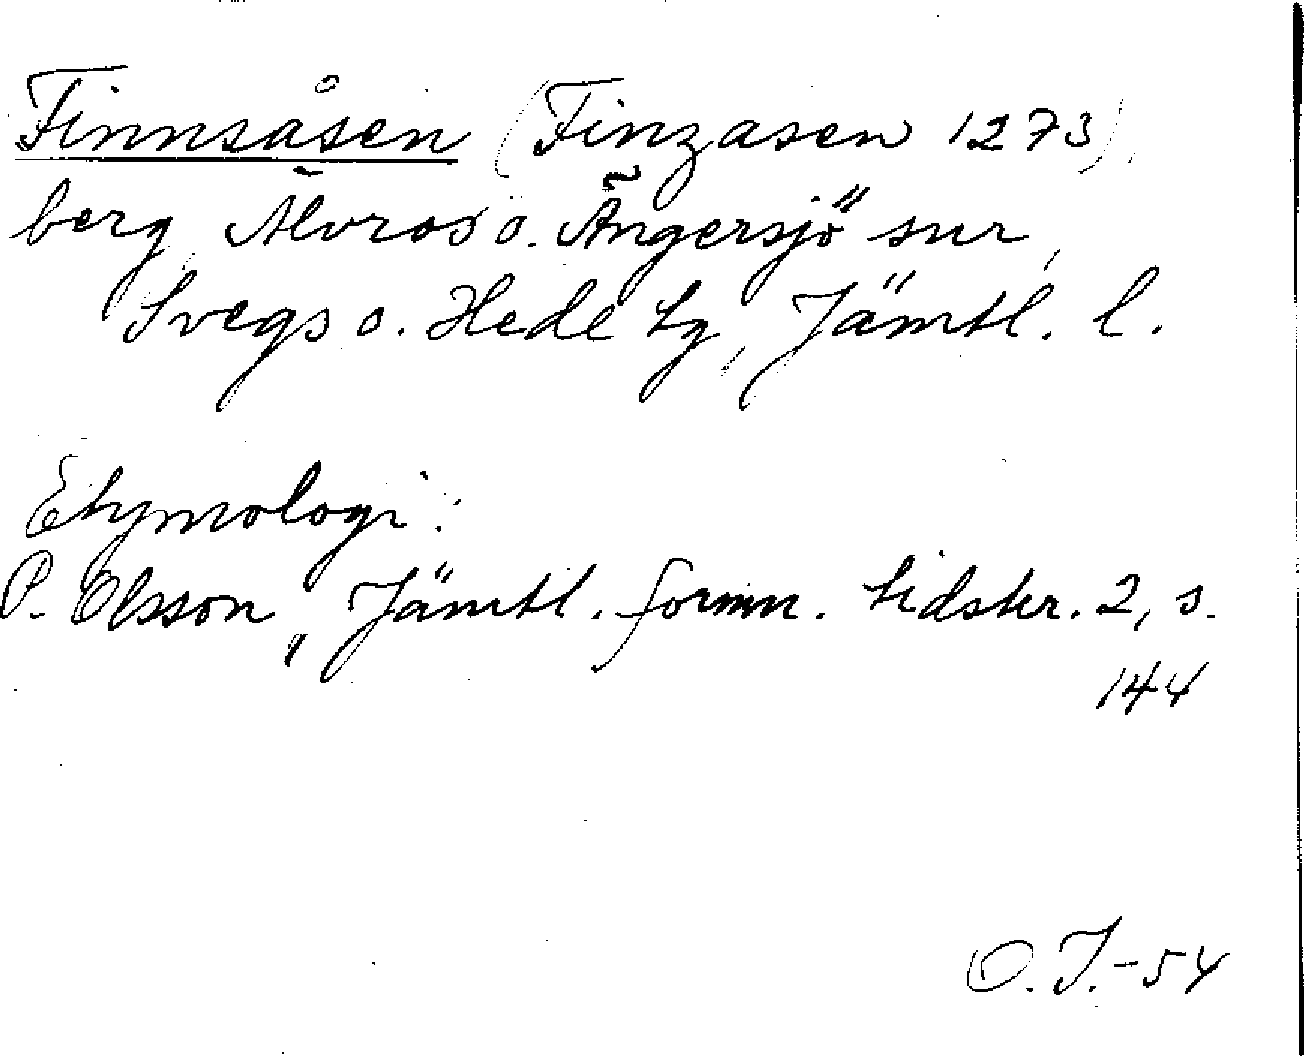 Finnsåsen (Finzasen 1273),
berg, Älvros o. Ängersjö snr,
Svegs o. Hede tg, Jämtl. l.
Etymologi:
P. Olsson, Jämtl. fornm. tidskr. 2, s.
144
O.J.-54